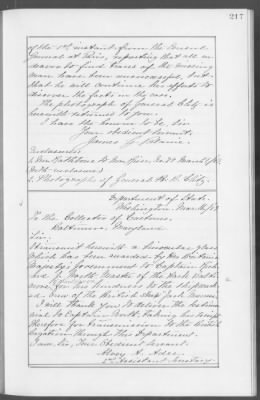 217
of the 1st instant from the Consul
General at Paris, reporting that all en-
deavors to find traces of the missing
man have been unsuccessful, but
that he will continue his efforts to
discover the facts in the case.
The photograph of General Clitz is
herewith returned to you.
I have the honor to be, Sir
Your obedient servant.
James G. Blaine.
Enclosures
1. Mr. Rathbone to Mr.
with enclosures
2. Photograph of General H. B. Clitz.
Department of State.
Washington, March
To the Collector of Customs,
Baltimore, Maryland
Sir:
I transmit herewith a binocular glass
which has been awarded by Her Britannic
Majesty's Government to Captain
Master of the Bark
for his kindness to the shipwreck-
ed crew of the British ship
I will thank you to deliver the testimo-
nial to Captain taking his receipt
therefor for transmission to the British
Legation through this Department.
I am, Sir, Your Obedient Servant.
Alvey A. Adee.
2nd Assistant Secretary.